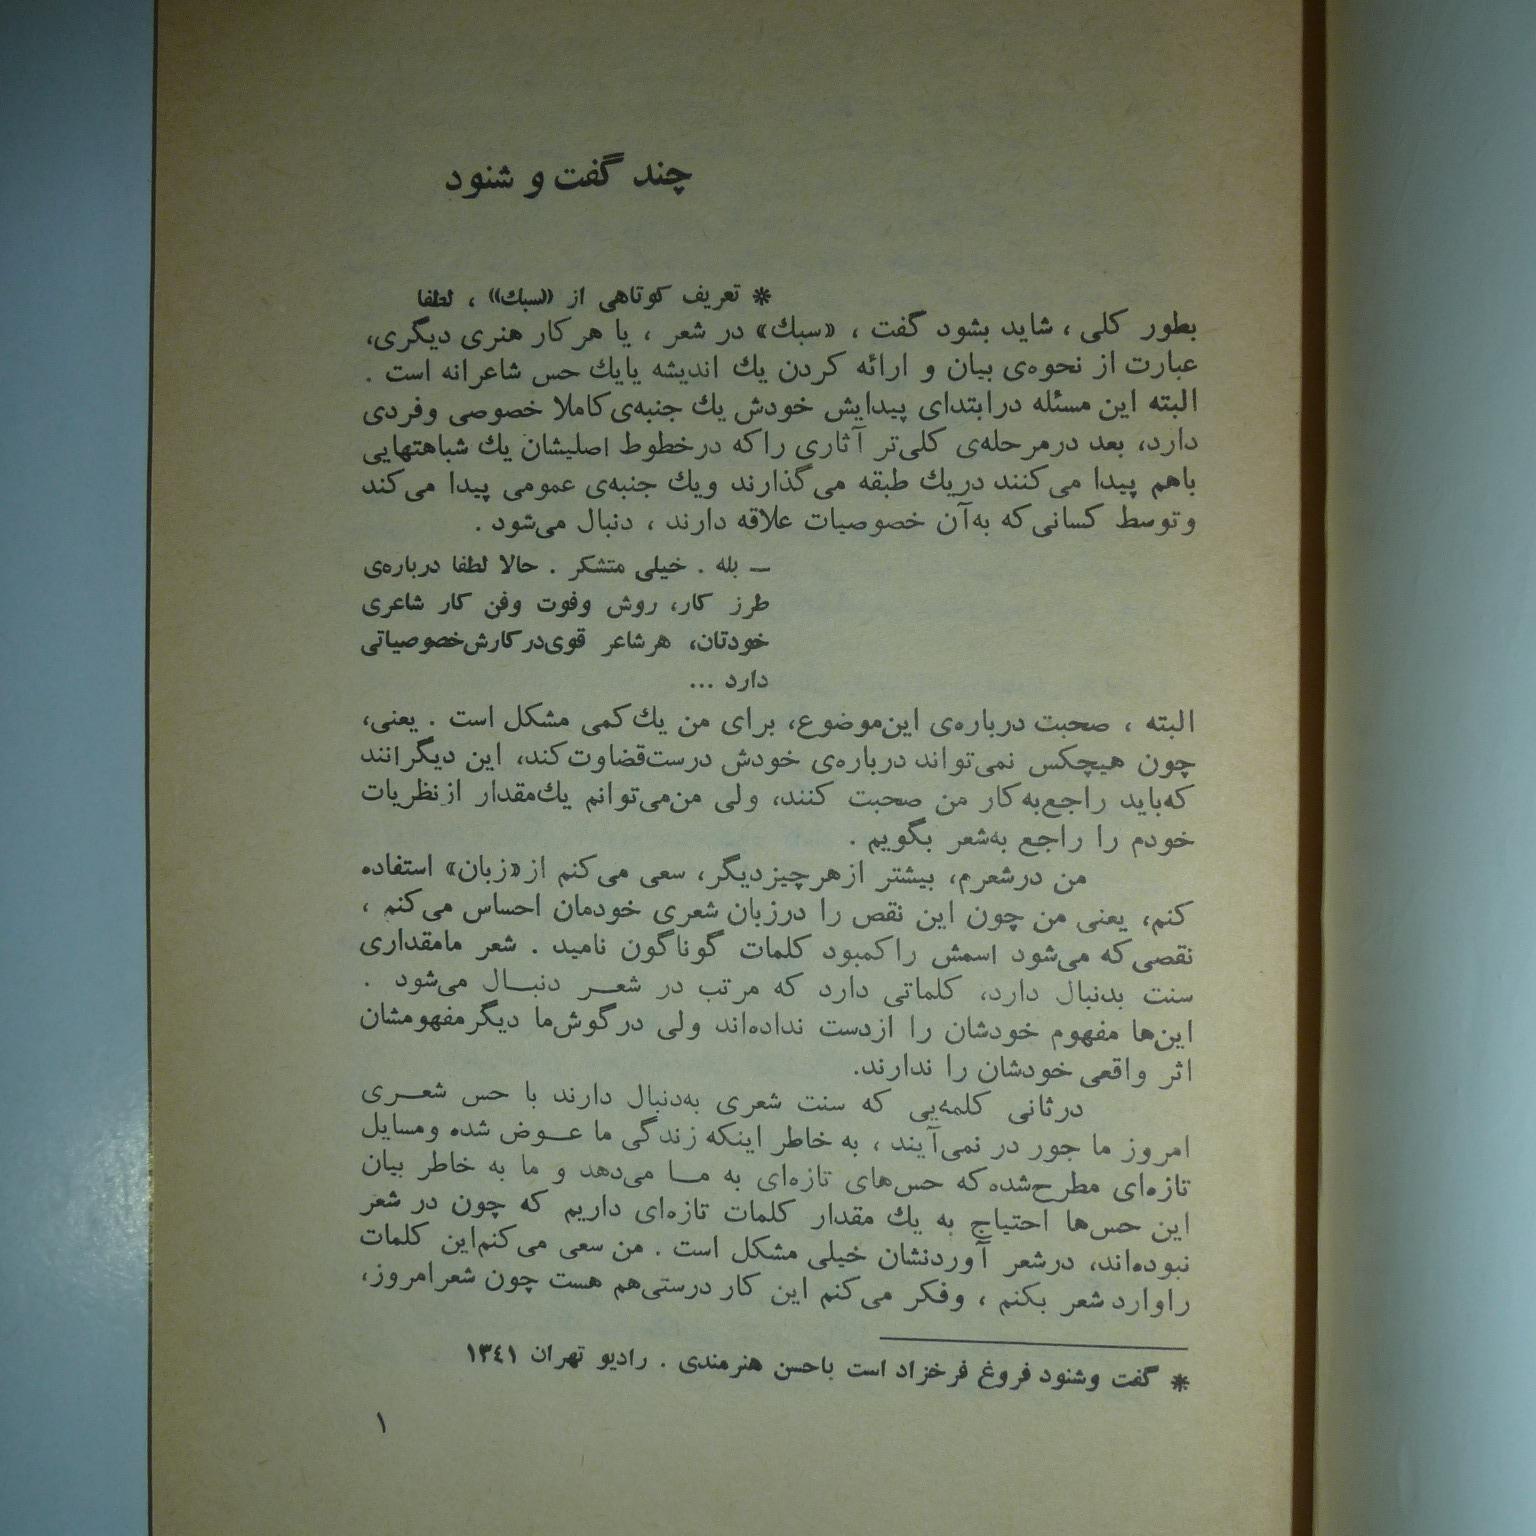 چند گفت و شنود
* تعریف کوتاهی از «سبك» ، لطفا
بطور کلی ، شاید بشود گفت ، «سبك» در شعر ، یا هر کار هنری دیگری،
عبارت از نحوه‌ی بیان و ارائه کردن يك اندیشه یا يك حس شاعرانه است .
البته این مسئله در ابتدای پیدایش خودش يك جنبه‌ی کاملا خصوصی و فردی
دارد، بعد در مرحله‌ی کلی‌تر آثاری را که در خطوط اصلیشان يك شباهتهایی
باهم پیدا می‌کنند در يك طبقه می‌گذارند و يك جنبه‌ی عمومی پیدا می‌کند
و توسط کسانی که به‌آن خصوصیات علاقه دارند ، دنبال می‌شود .
ــ بله . خیلی متشکر . حالا لطفا درباره‌ی
طرز کار، روش و فوت و فن کار شاعری
خودتان، هر شاعر قوی در کارش خصوصیاتی
دارد ...
البته ، صحبت درباره‌ی این‌موضوع، برای من يك کمی مشکل است . یعنی،
چون هیچکس نمی‌تواند درباره‌ی خودش درست‌قضاوت کند، این دیگرانند
که‌باید راجع‌به‌کار من صحبت کنند، ولی من‌می‌توانم يك‌مقدار از نظریات
خودم را راجع به‌شعر بگویم .
من در شعرم، بیشتر از هر چیز دیگر، سعی می‌کنم از «زبان» استفاده
کنم، یعنی من چون این نقص را در زبان شعری خودمان احساس می‌کنم ،
نقصی که می‌شود اسمش را کمبود کلمات گوناگون نامید . شعر ما مقداری
سنت بدنبال دارد، کلماتی دارد که مرتب در شعــر دنبــال می‌شود .
این‌ها مفهوم خودشان را از دست نداده‌اند ولی در گوش‌ما دیگر مفهومشان
اثر واقعی خودشان را ندارند.
در ثانی کلمه‌یی که سنت شعری به‌دنبال دارند با حس شعــری
امروز ما جور در نمی‌آیند ، به خاطر اینکه زندگی ما عــوض شده و مسایل
تازه‌ای مطرح‌شده که حس‌های تازه‌ای به مــا می‌دهد و ما به خاطر بیان
این حس‌ها احتیاج به يك مقدار کلمات تازه‌ای داریم که چون در شعر
نبوده‌اند، در شعر آوردنشان خیلی مشکل است . من سعی می‌کنم این کلمات
را وارد شعر بکنم ، و فکر می‌کنم این کار درستی‌هم هست چون شعر امروز،
* گفت و شنود فروغ فرخزاد است با حسن هنرمندی . رادیو تهران ۱۳٤۱
۱